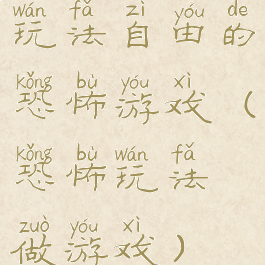 wán fǎ zì yóu de
玩法自由的
kǒng bù yóu xì
恐怖游戏（
kǒng bù wán fǎ
恐怖玩法
zuò yóu xì
做游戏）